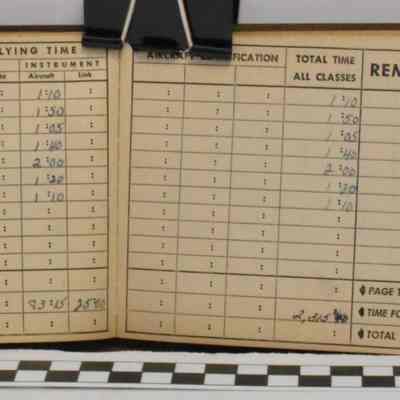 LYING TIME
INSTRUMENT
Aircraft Link
1:10
1:50
1:05
1:40
2:00
1:20
1:10
AIRCRAFT CLASSIFICATION TOTAL TIME ALL CLASSES REM
1:10
1:50
1:05
1:40
2:00
1:20
1:10
PAGE T
TIME FO
TOTAL